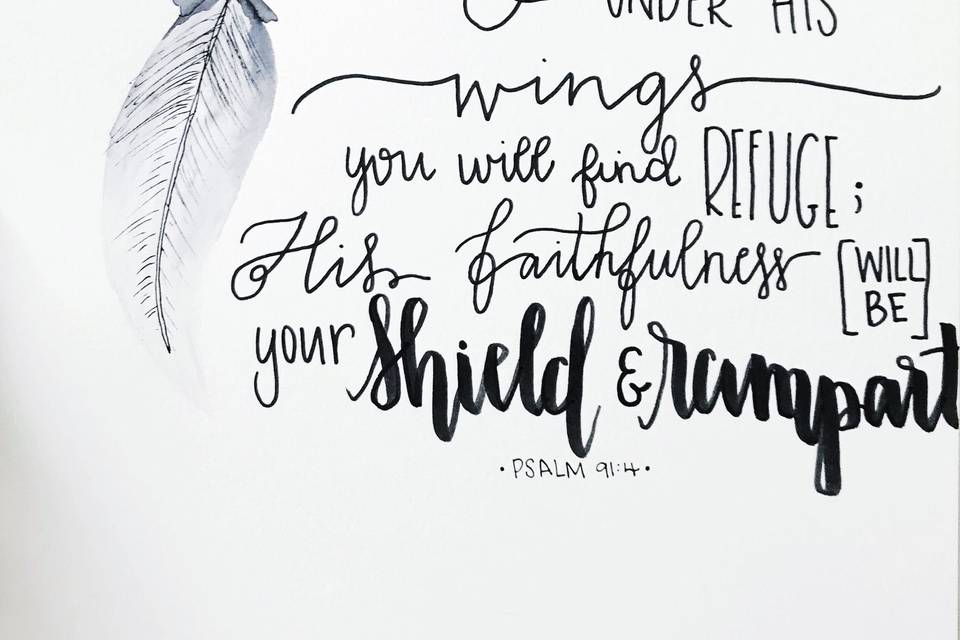 & UNDER HIS
wings
you will find REFUGE;
His faithfulness [WILL BE]
your shield & rampart
•PSALM 91:4•